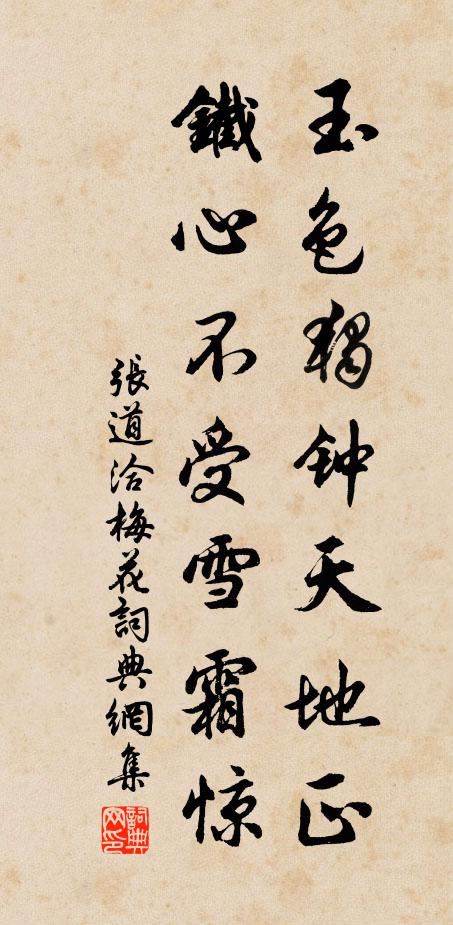 玉色独钟天地正
鐵心不受雪霜惊
張道洽梅花詞典網集
詞典网印